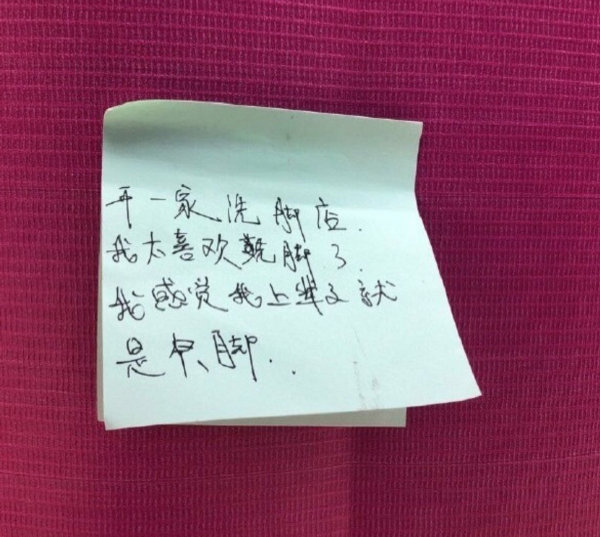 开一家洗脚店.
我太喜欢脚了.
我感觉我上辈子就
是只脚..